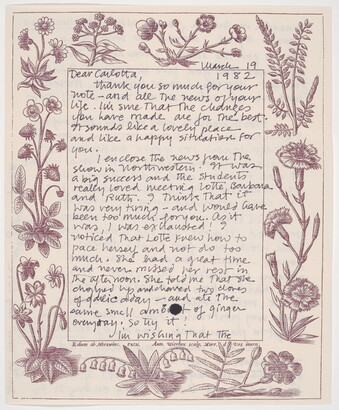 March 19
1982
Dear Carlotta,
Thank you so much for your
note – and all the news of your
life. I'm sure that the changes
you have made are for the best.
It sounds like a lovely place
and like a happy situation for
you.
I enclose the news from the
show in Northwestern. It was
a big success and the students
really loved meeting Lotte, Barbara
and Ruth. I think that it
was very tiring – and would have
been too much for you. As it
was, I was exhausted! I
noticed that Lotte knew how to
pace herself and not do too
much. She had a great time
and never missed her rest in
the afternoon. She told me that she
chopped up and chewed two cloves
of garlic a day – and ate the
same small amount of ginger
everyday. So try it!
I'm wishing that the